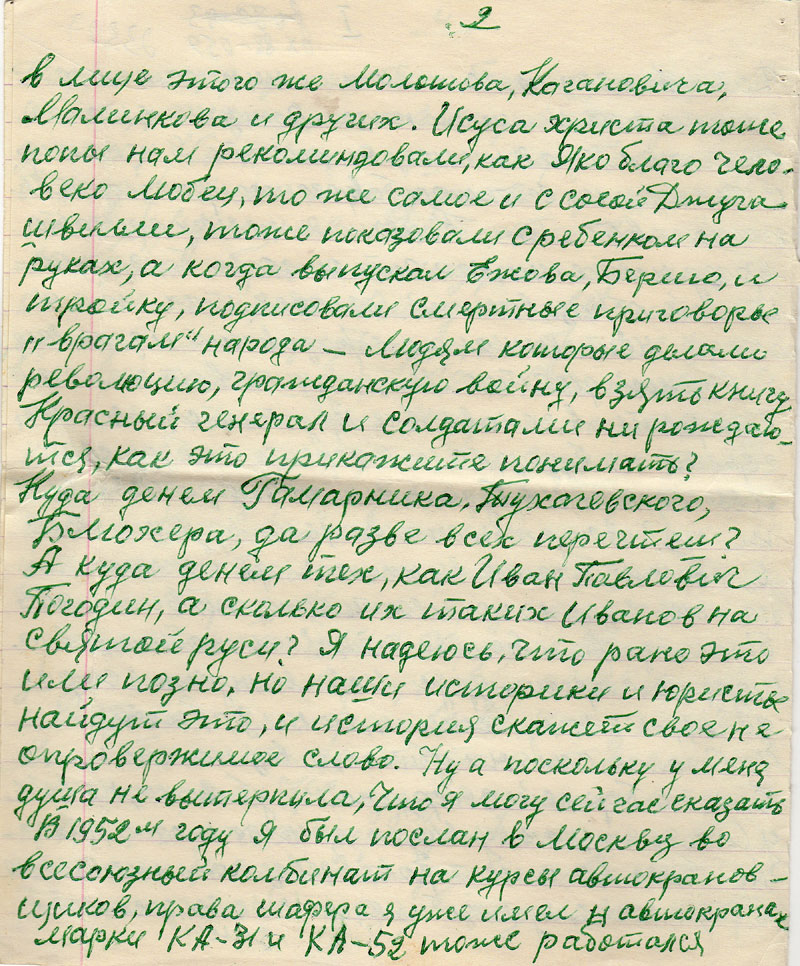 2
в лице этого же Молотова, Кагановича,
Малинкова и других. Исуса христа тоже
попы нам рекоминдовали, как Яко благо чело-
веко любец, то же самое и с сосой Джуга
швили, тоже показовали с ребенком на
руках, а когда выпускал Ежова, Берию, и
тройку, подписовали смертные приговоры
"врагам" народа – людям которые делали
революцию, гражданскую войну, взять книгу
Красный генерал и солдатами ни рождаю-
тся, как это прикажите понимать?
Куда денем Гамарника, Тухачевского,
Блюхера, да разве всех перечтеш?
А куда денем тех, как Иван Павлович
Погодин, а сколько их таких Иванов на
святой руси? Я надеюсь, что рано это
или позно, но наши историки и юристы
найдут это, и история скажет свое не
опровержимое слово. Ну а поскольку у меня
душа не вытерпила, что я могу сейчас сказать
В 1952м году я был послан в Москву во
всесоюзный комбинат на курсы автокранов-
щиков, права шафера я уже имел и автокранах
марки КА-31 и КА-52 тоже работался